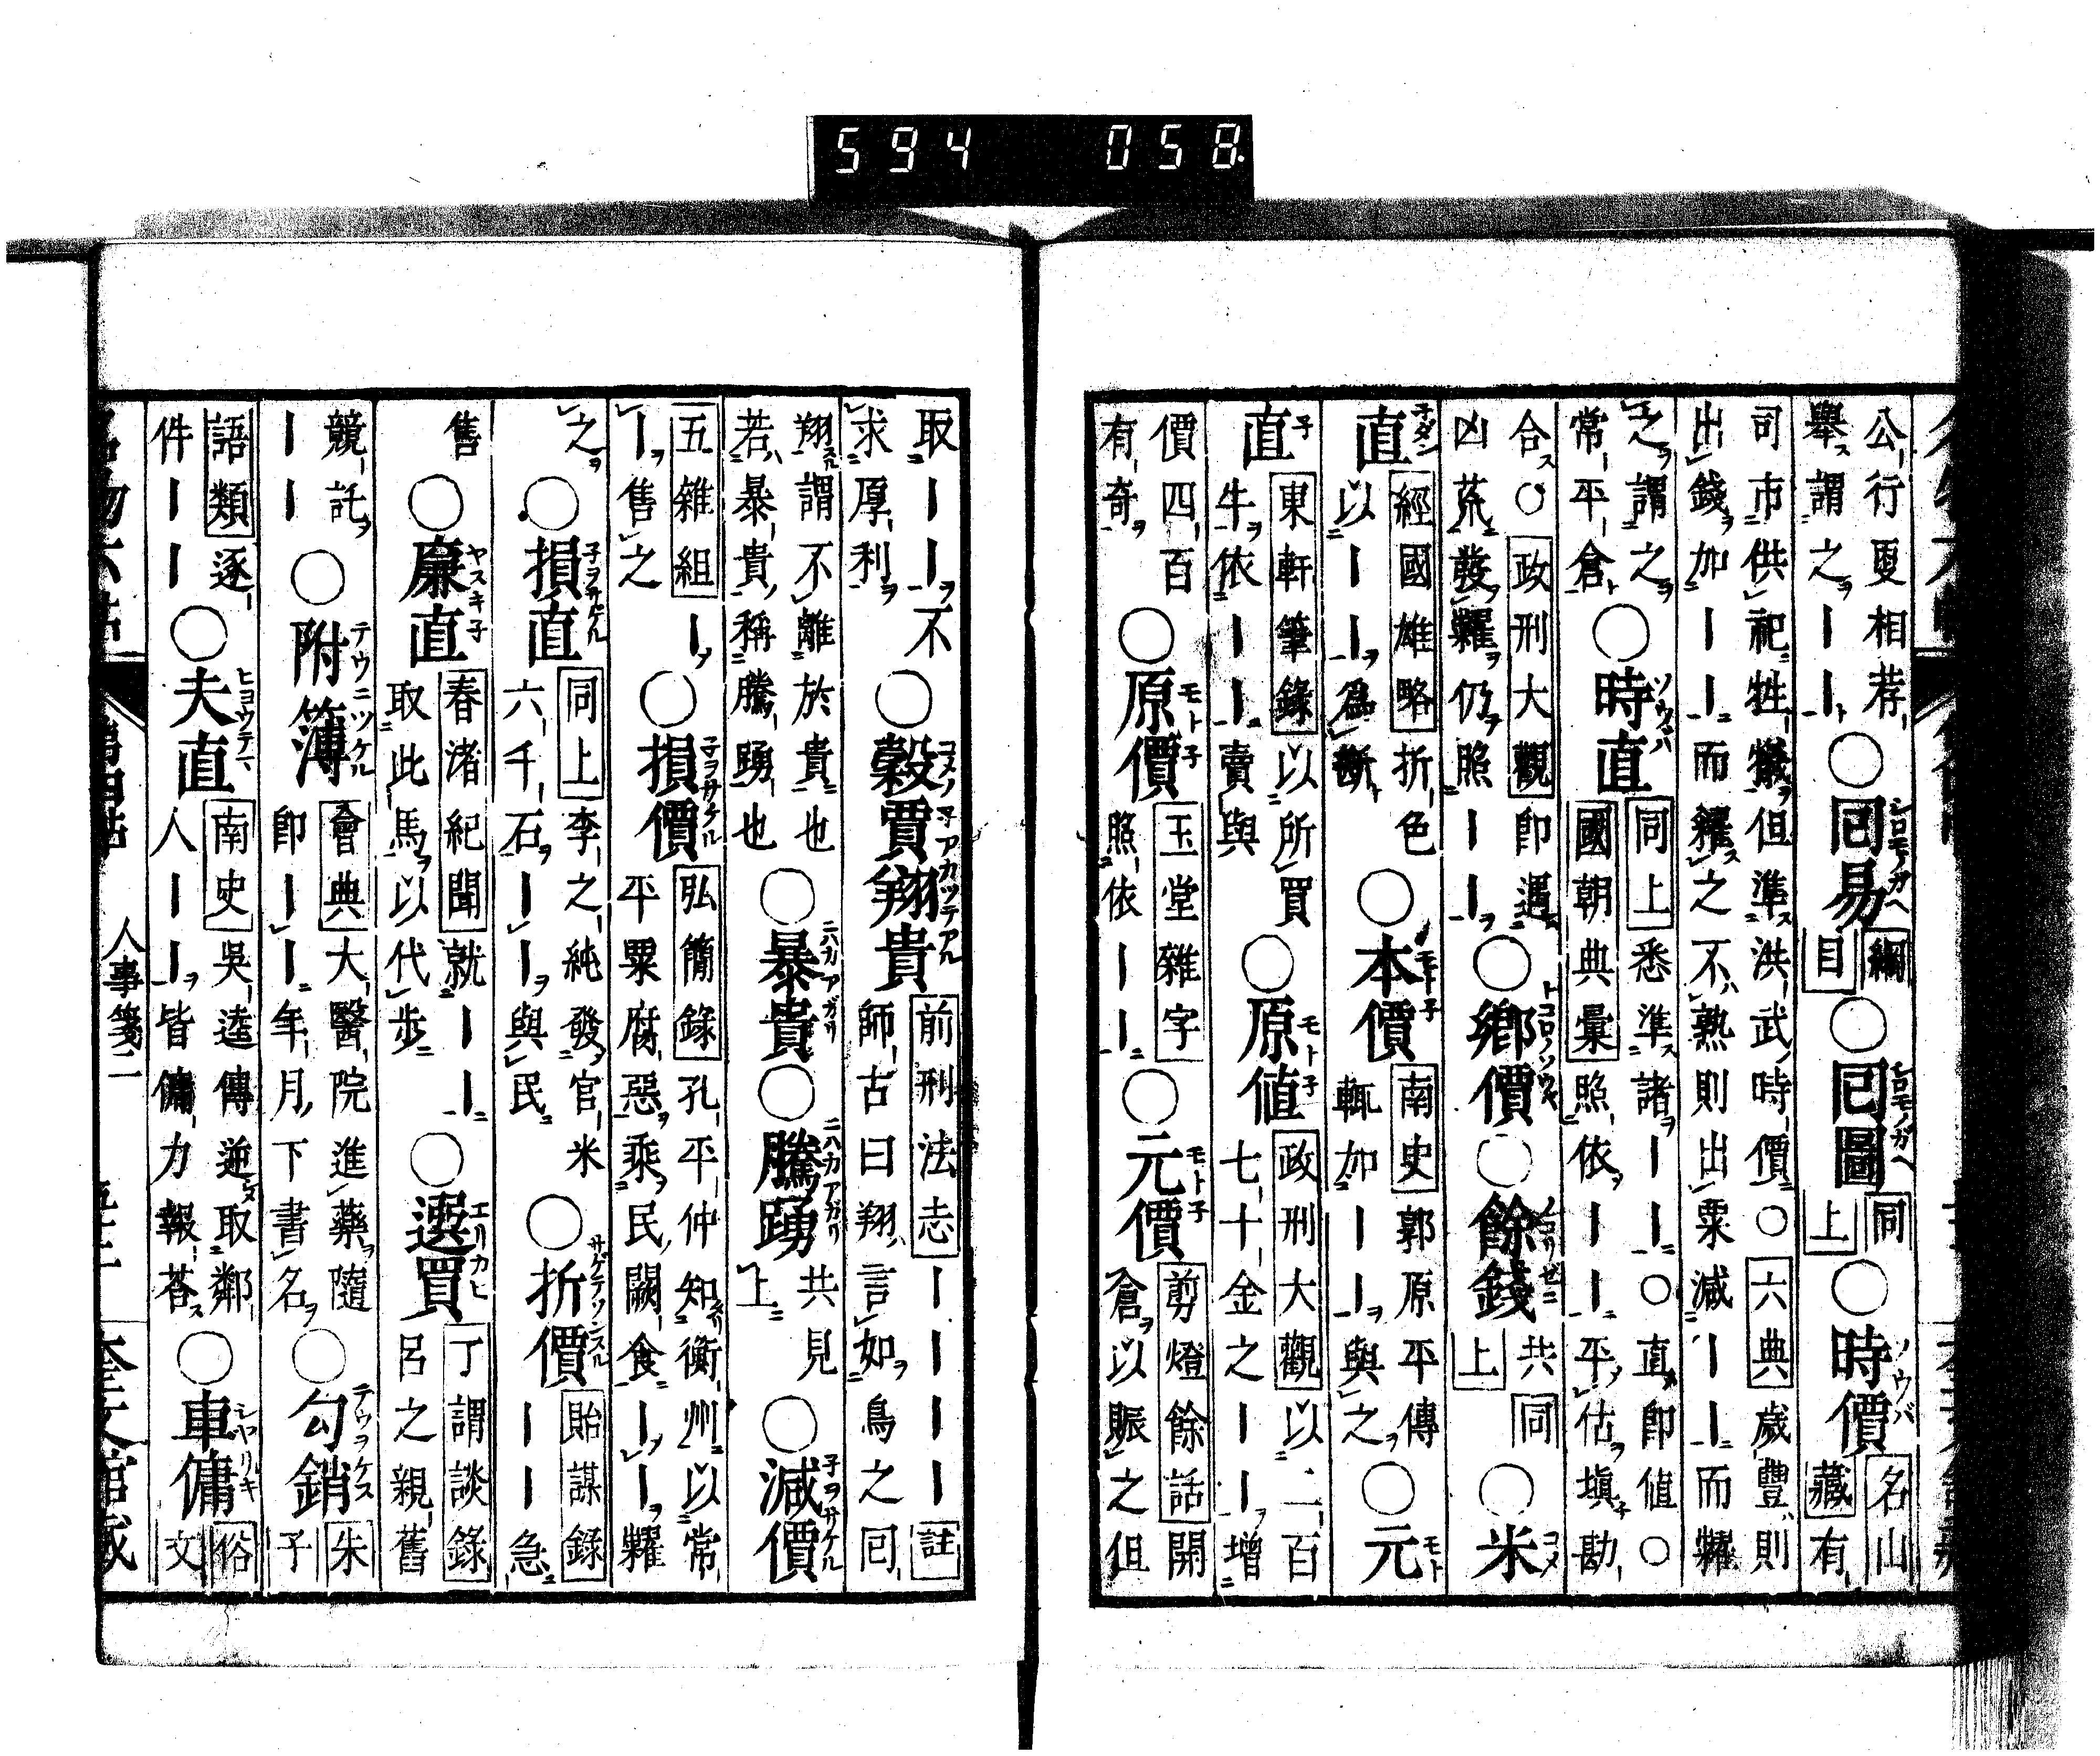 公行更相荐
擧謂之｜｜
○回易
綱
目
○回圖
同
上
○時價
名山
藏有
司市供祀牲犧但準洪武時價○六典歲豐則
出錢加｜｜而糴之不熟則出粟減｜｜而糶
之謂之
常平倉
○時直
同上悉準諸｜｜○直即值○
國朝典彙照依｜｜平估塡勘
合○政刑大觀即遇
凶荒發糶仍照｜｜
○鄉價○餘錢
共同
上
○米
直
經國雄略折色
以｜｜爲斷
○本價
南史郭原平傳
輒加｜｜與之
○元
直
東軒筆錄以所買
牛依｜｜賣與
○原値
政刑大觀以二百
七十金之｜｜增
價四百
有奇
○原價
玉堂雜字
照依｜｜
○元價
剪燈餘話開
倉以賑之但
取｜｜不
求厚利
○穀賈翔貴
前刑法志｜｜｜｜註
師古曰翔言如鳥之回
翔謂不離於貴也
若暴貴稱騰踴也
○暴貴○騰踴
共見
上
○減價
五雜組｜
｜售之
○損價
弘簡錄孔平仲知衡州以常
平粟腐惡乘民闕食｜｜糶
之
○損直
同上李之純發官米
六千石｜｜與民
○折價
貽謀錄
｜｜急
售
○廉直
春渚紀聞就｜｜
取此馬以代步
○選買
了謂談錄
呂之親舊
競託
｜｜
○附簿
會典大醫院進藥隨
即｜｜年月下書名
○勾銷
朱
子
語類逐
件｜｜
○夫直
南史吳逵傳逆取鄰
人｜｜皆傭力報荅
○車傭
俗
文
人事箋二
奎文館藏
594 058